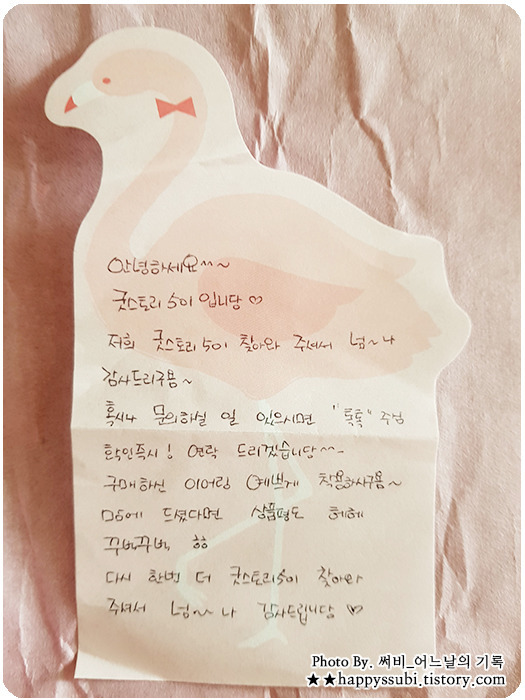 안녕하세요^^~
굿스토리501입니당♡
저희 굿스토리501 찾아와 주셔서 넘~나
감사드리구용~
혹시나 문의하실 일 있으시면 "톡톡" 주심
확인즉시! 연락 드리겠습니당^^~
구매하신 이어링 예쁘게 착용하시구용~
맘에 드셨다면 상품평도 헤헤
꾸벅꾸벅 ㅎㅎ
다시 한번 더 굿스토리501 찾아와
주셔서 넘~~나 감사드립니당 ♡
Photo By. 써비_어느날의 기록
★★happyssubi.tistory.com